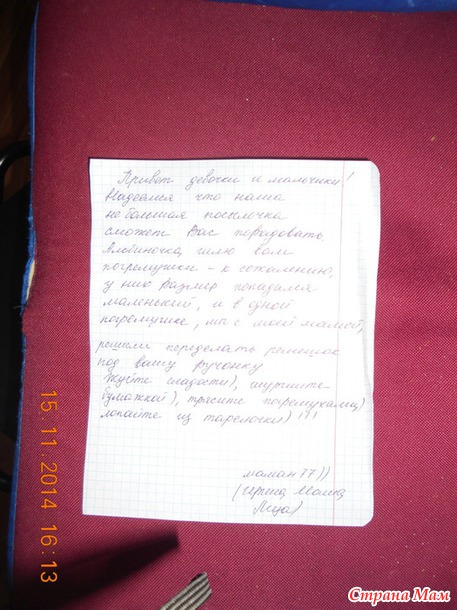 Привет девочки и мальчики!
Надеемся что наша
не большая посылочка
сможет Вас порадовать.
Альбиночка, шлю вам
погремушки - к сожалению,
у них размер попадался
маленький, и в одной
погремушке, мы с моей мамой,
решили переделать ремешок
под вашу ручонку
Жуйте сладости), шуршите
бумажкой), трясите погремушками)
лопайте из тарелочки) !!!
маман77))
(Ирина, Маша,
15.11.2014 16:13
Страна Мам